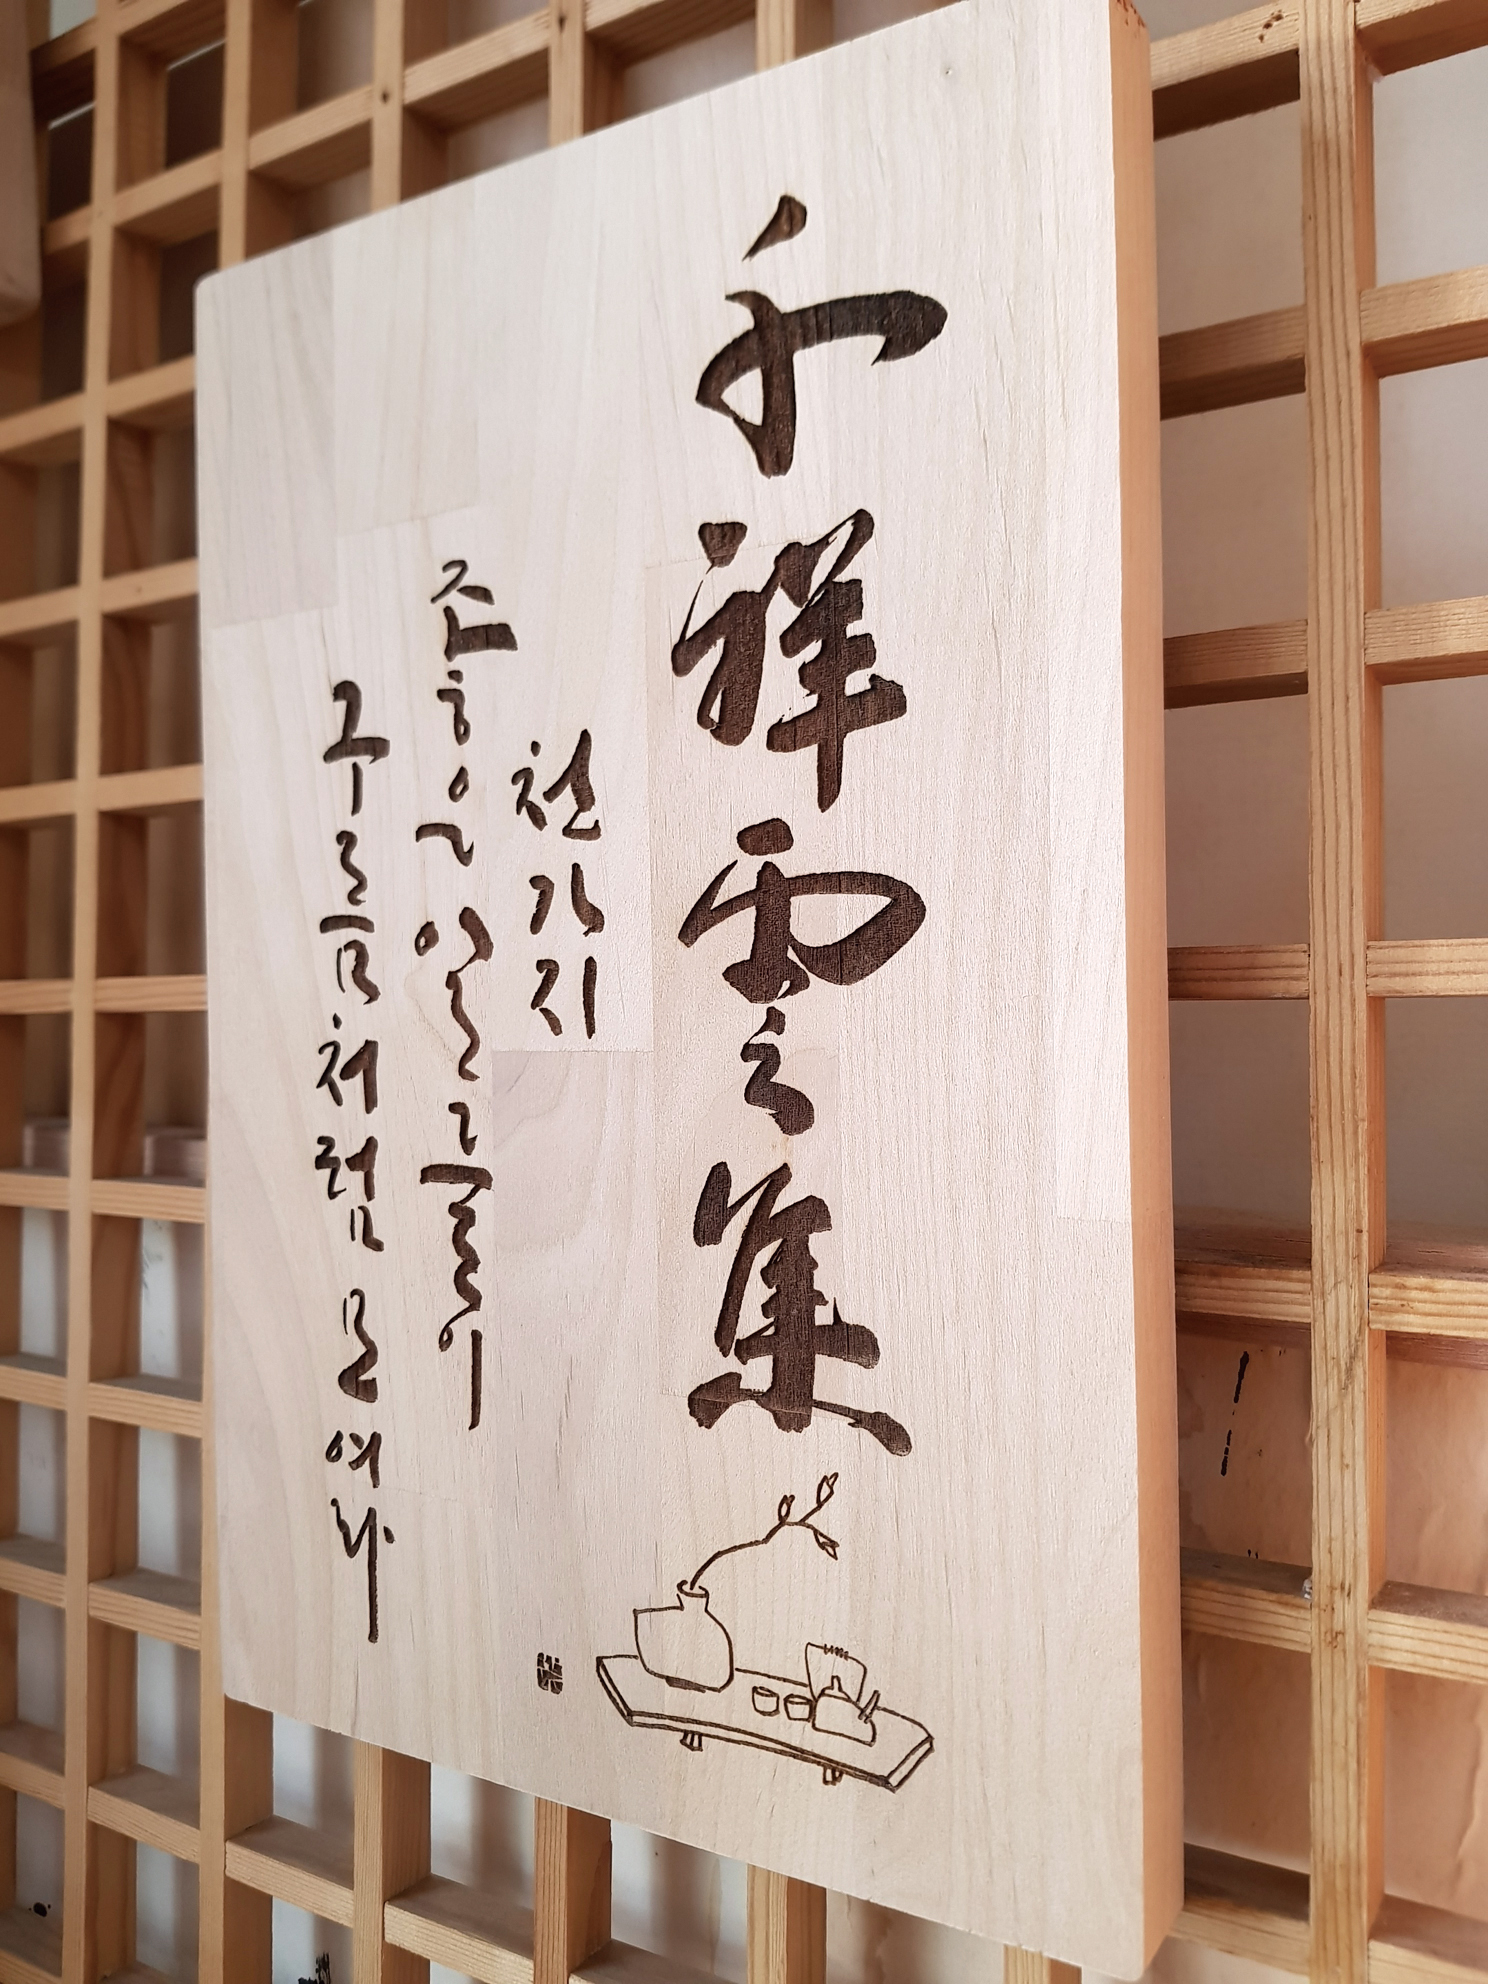 千祥雲集
천가지
좋은 일들이
구름처럼 모여라